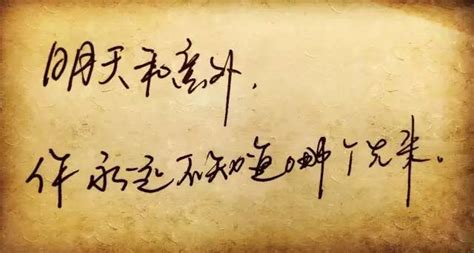 明天和意外.
你永远不知道哪个先来.